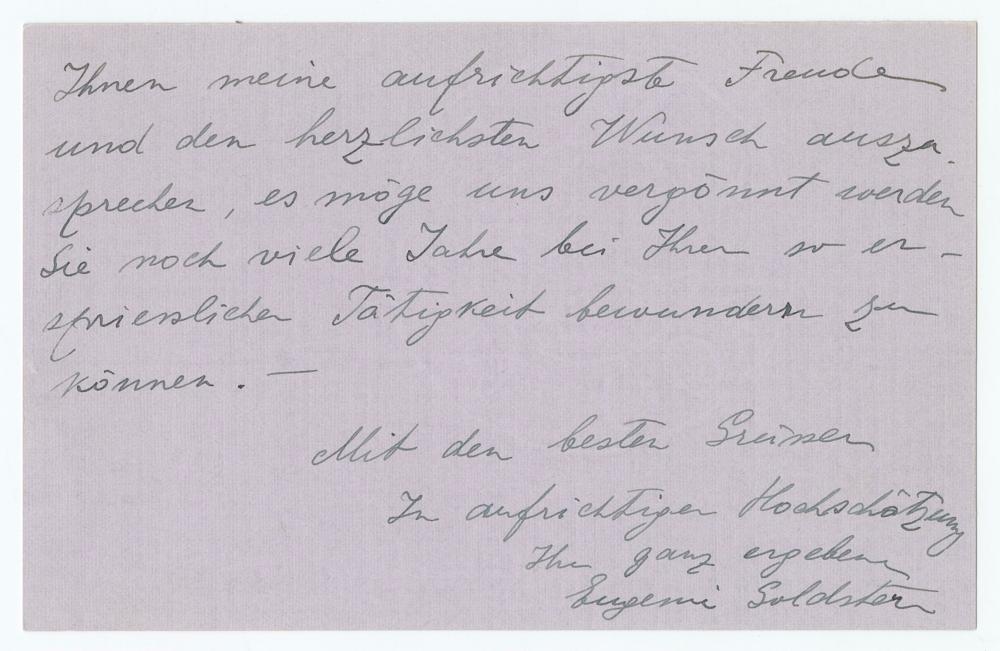 Ihnen meine aufrichtigste Freude
und den herzlichsten Wunsch auszu-
sprechen, es möge uns vergönnt werden
Sie noch viele Jahre bei Ihrer so er-
spriesslichen Tätigkeit bewundern zu
können. —
Mit den besten Grüssen
In aufrichtiger Hochschätzung
Ihre ganz ergebene
Eugenie Goldstern